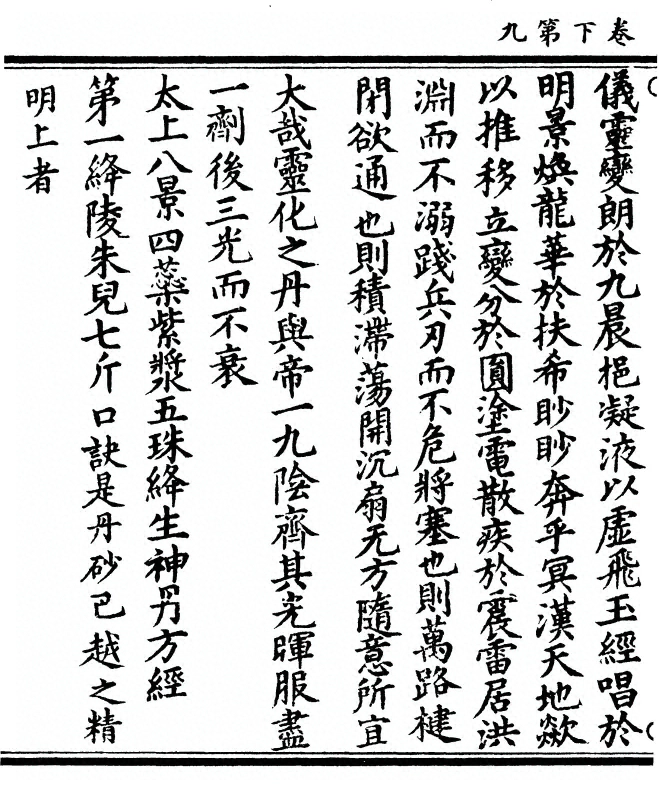 卷下第九
儀靈變朗於九晨挹凝液以虛飛玉經唱於
明景煥龍華於扶希眇眇奔乎冥漢天地歘
以推移立變分於圓塗電散疾於震雷居洪
淵而不溺踐兵刃而不危將塞也則萬路楗
閇欲通也則積滯蕩開沉扇无方隨意所宜
大哉靈化之丹與帝一九陰齊其光暉服盡
一劑後三光而不衰
太上八景四蘂紫漿五珠絳生神丹方經
第一絳陵朱兒七斤口訣是丹砂巴越之精
明上者